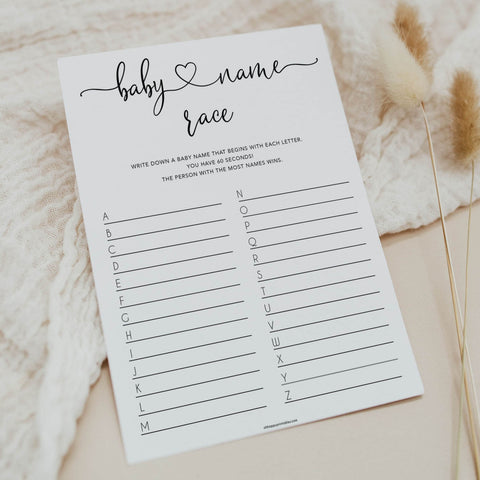 baby name
race
WRITE DOWN A BABY NAME THAT BEGINS WITH EACH LETTER.
YOU HAVE 60 SECONDS!
THE PERSON WITH THE MOST NAMES WINS.
A
B
C
D
E
F
G
H
I
J
K
L
M
N
O
P
Q
R
S
T
U
V
W
X
Y
Z